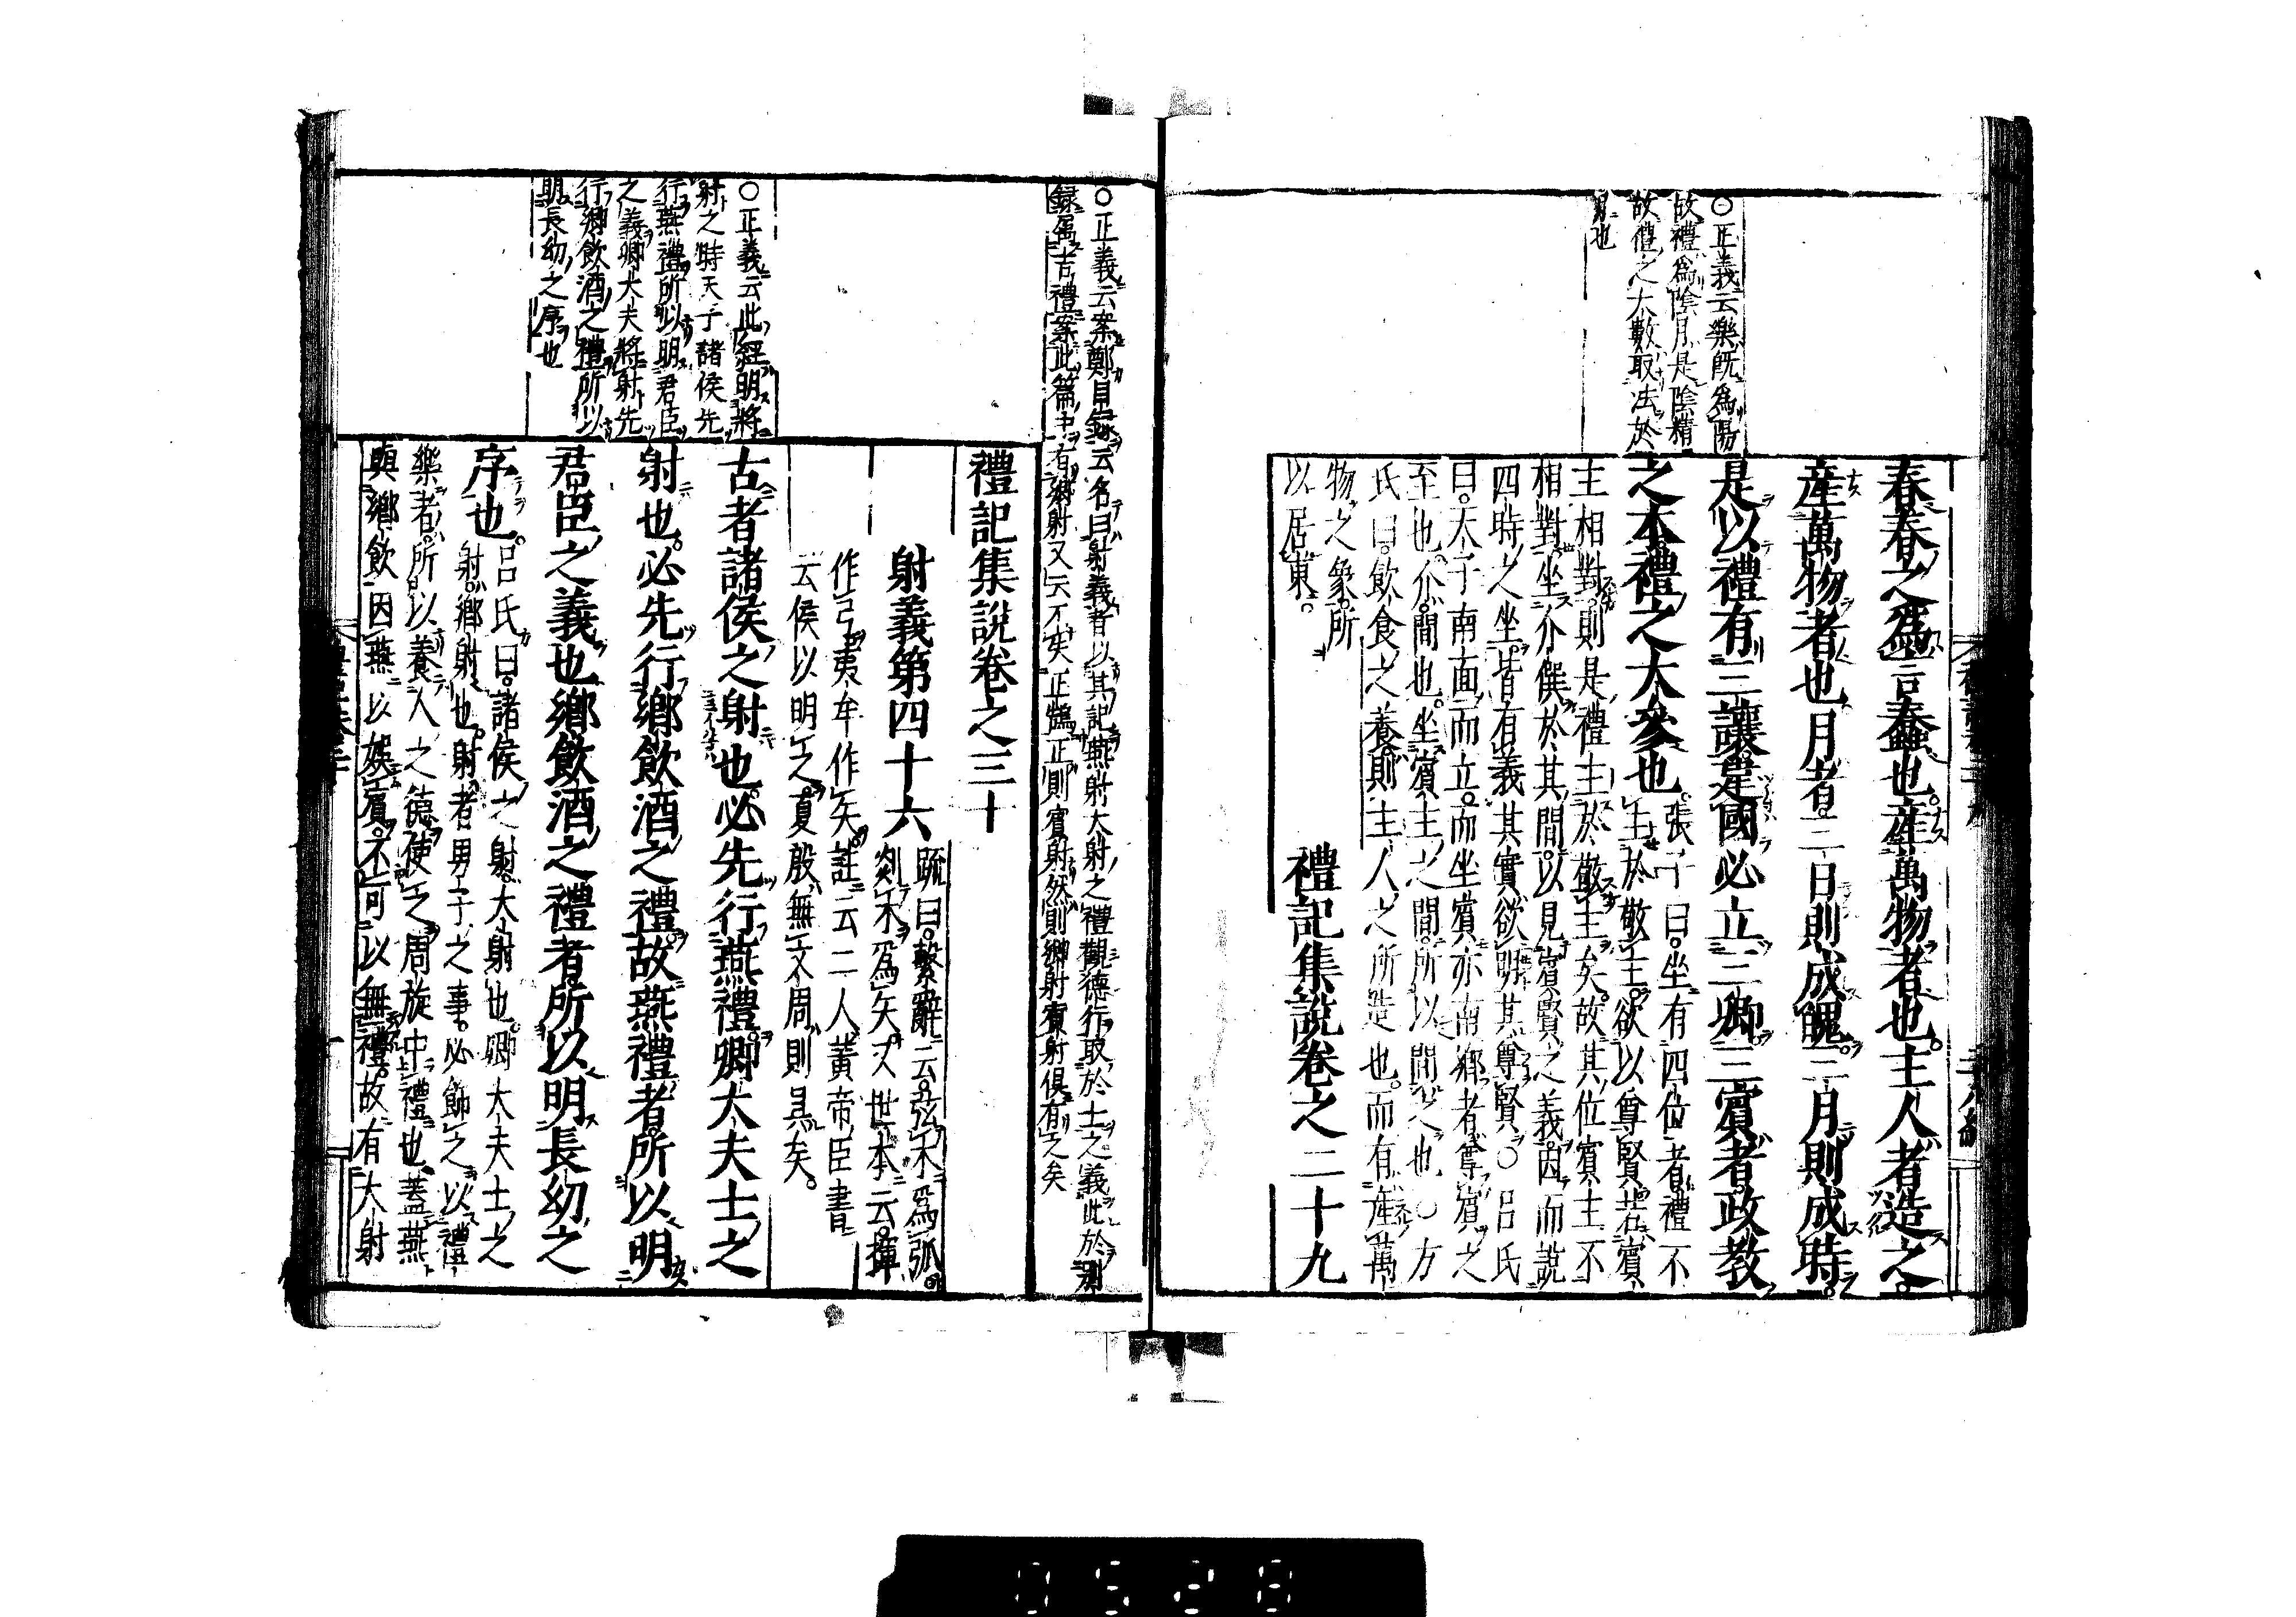 ○正義云樂既爲陽
故禮爲陰月是陰精
故禮之大數取法於
月也
春春之爲言蠢也產萬物者也主人者造之
產萬物者也月者三日則成魄三月則成時
是以禮有三讓建國必立三卿三賓者政教
之本禮之大參也
張子曰坐有四位者禮不
主於敬主欲以尊賢若賓
主相對則是禮主於敬主矣故其位賓主不
相對坐介僎於其間以見賓賢之義因而說
四時之坐皆有義其實欲明其尊賢○呂氏
曰天子南面而立而坐賓亦南鄉者尊賓之
至也介間也坐賓主之間所以間之也○方
氏曰飲食之養則主人之所造也而有產萬
物之象所
以居東
禮記集說卷之二十九
○正義云案鄭目録云名曰射義者以其記燕射大射之禮觀德行取於士之義此於別
録屬吉禮案此篇中有鄉射又云不失正鵠正則賓射然則鄉射賓射俱有之矣
禮記集說卷之三十
射義第四十六
疏曰繫辭云弦木爲弧
剡木爲矢又世本云揮
作弓夷牟作矢註云二人黃帝臣書
云侯以明之夏殷無文周則具矣
○正義云此經明將
射之時天子諸侯先
行燕禮所以明君臣
之義卿大夫將射先
行鄉飲酒之禮所以
明長幼之序也
古者諸侯之射也必先行燕禮卿大夫士之
射也必先行鄉飲酒之禮故燕禮者所以明
君臣之義也鄉飲酒之禮者所以明長幼之
序也
呂氏曰諸侯之射大射也卿大夫士之
射鄉射也射者男子之事必飾之以禮
樂者所以養人之德使之周旋中禮也蓋燕
與鄉飲因燕以娛賓不可以無禮故有大射
0528